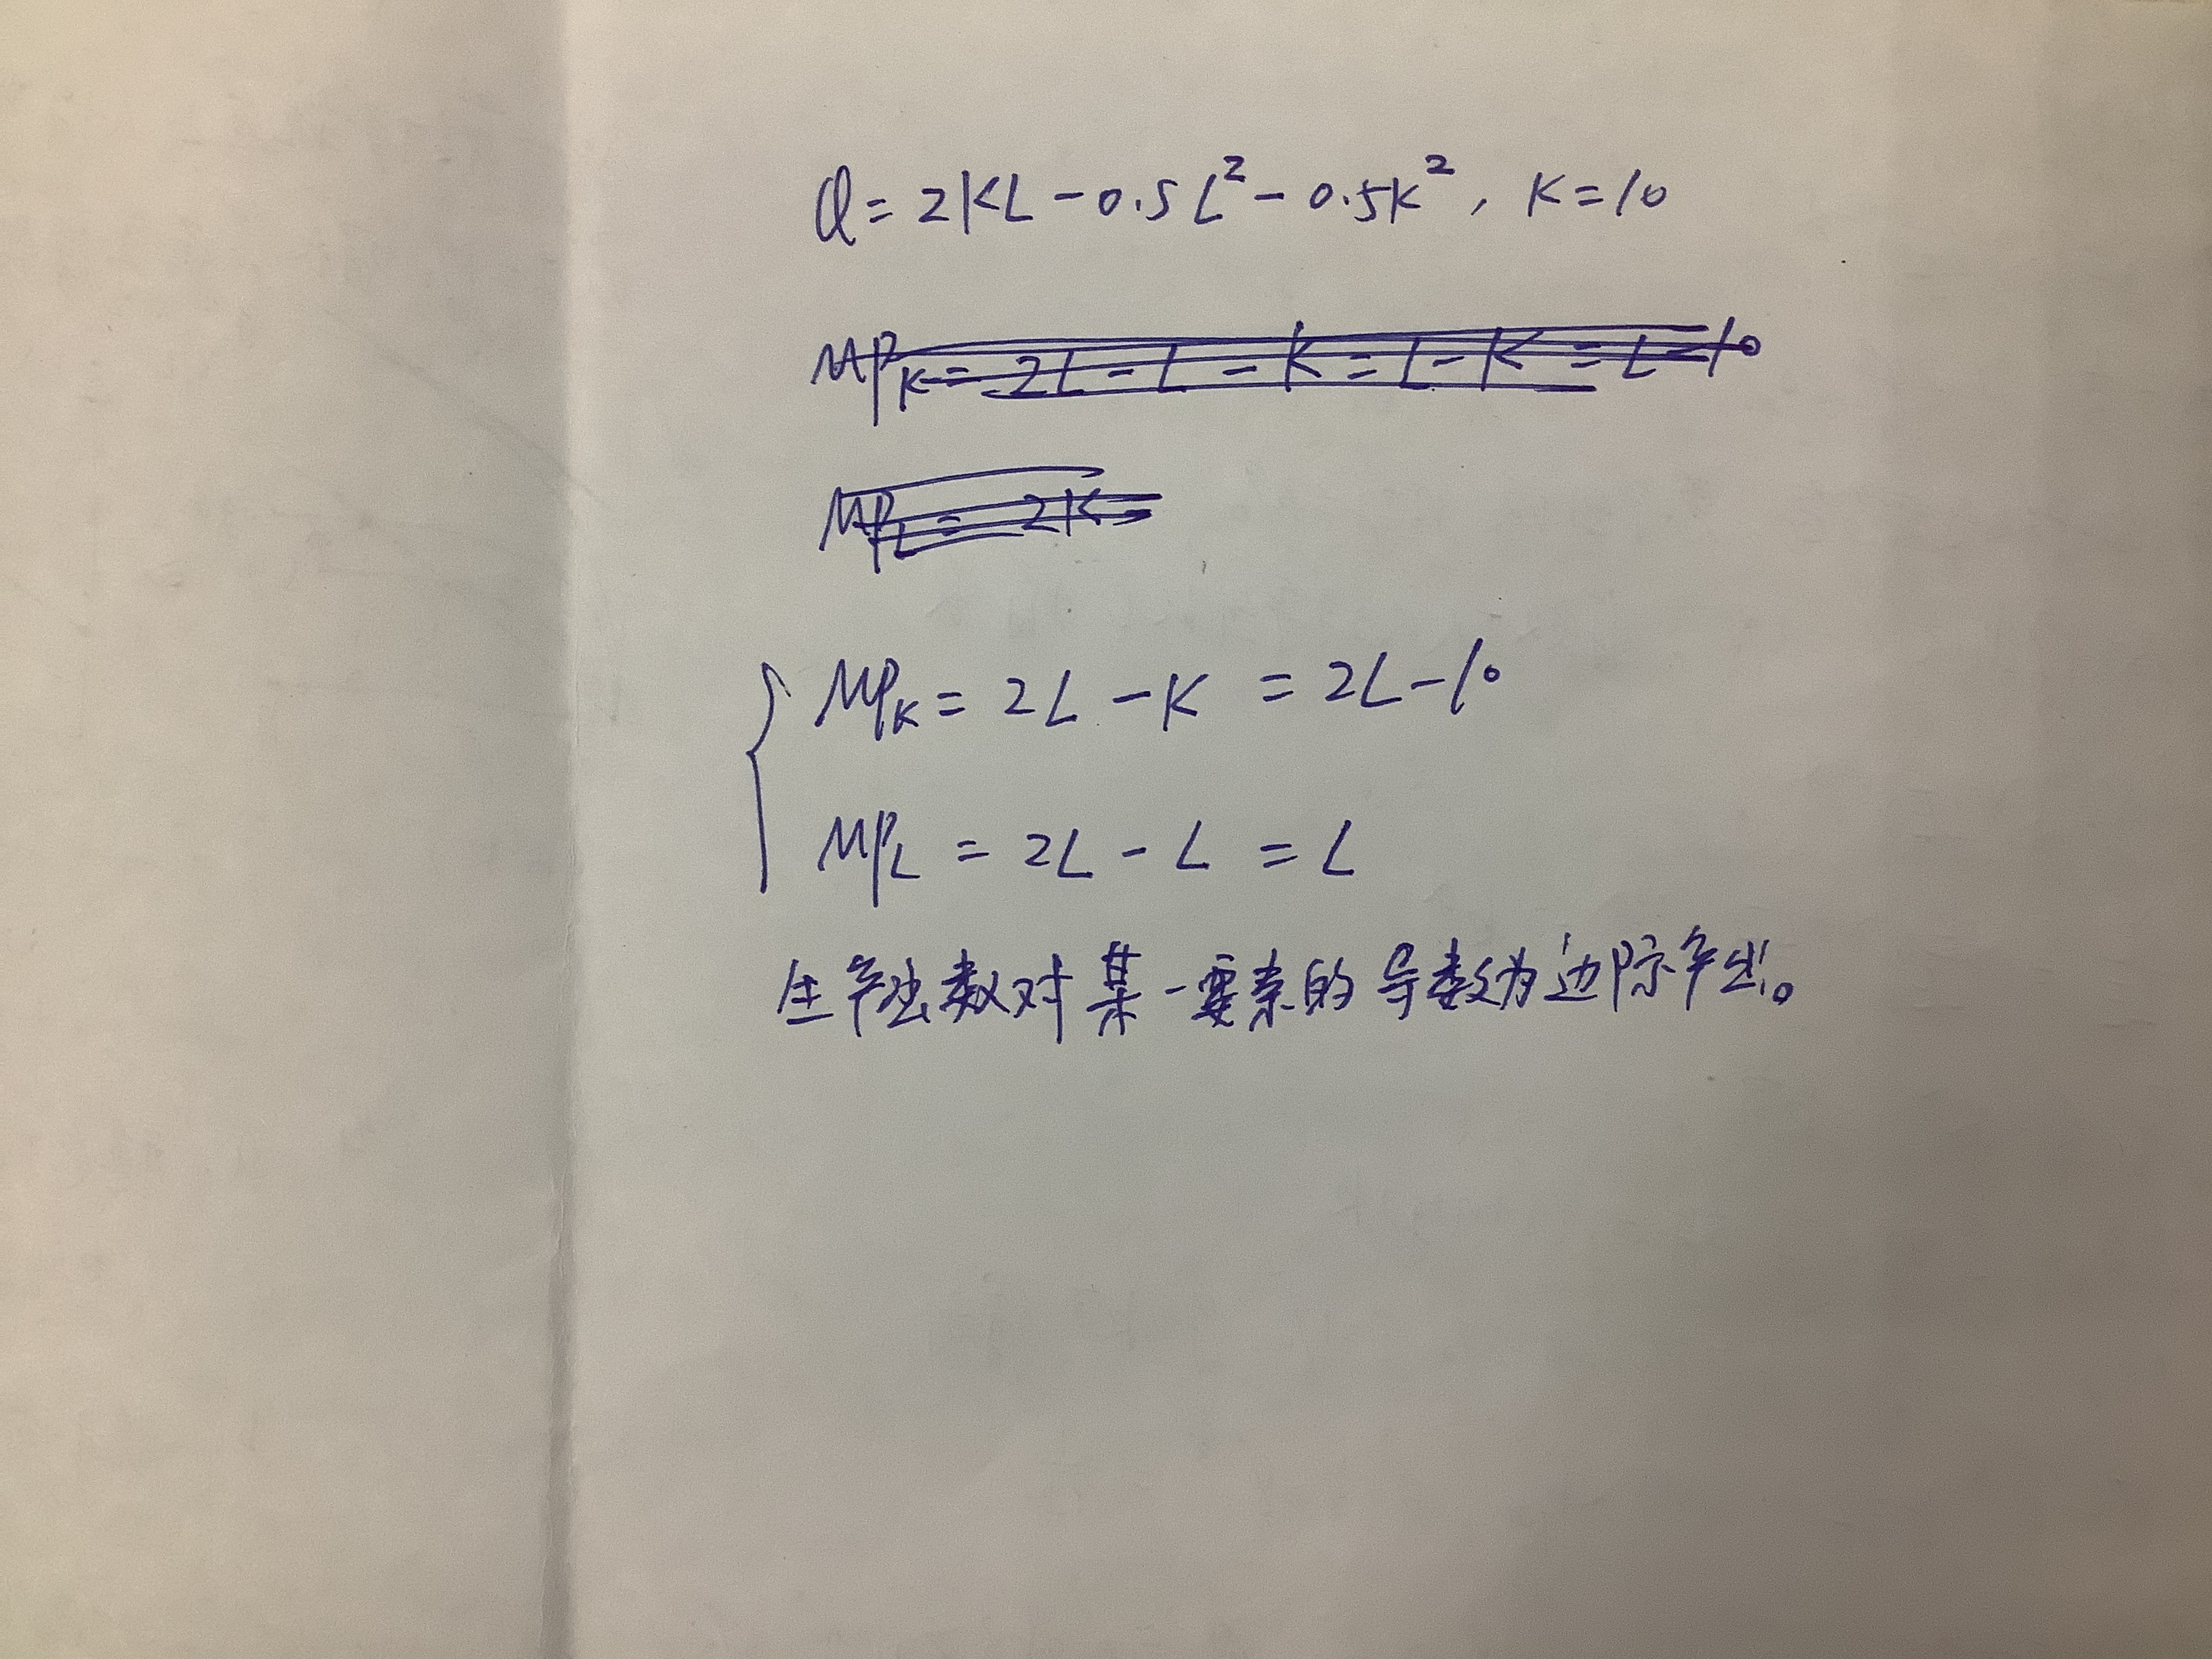 Q = 2KL - 0.5L² - 0.5K², K = 10
MPK = 2L - L - K = L - K = L - 10
MPL = 2K -
MPK = 2L - K = 2L - 10
MPL = 2L - L = L
生产函数对某一要素的导数为边际产出。